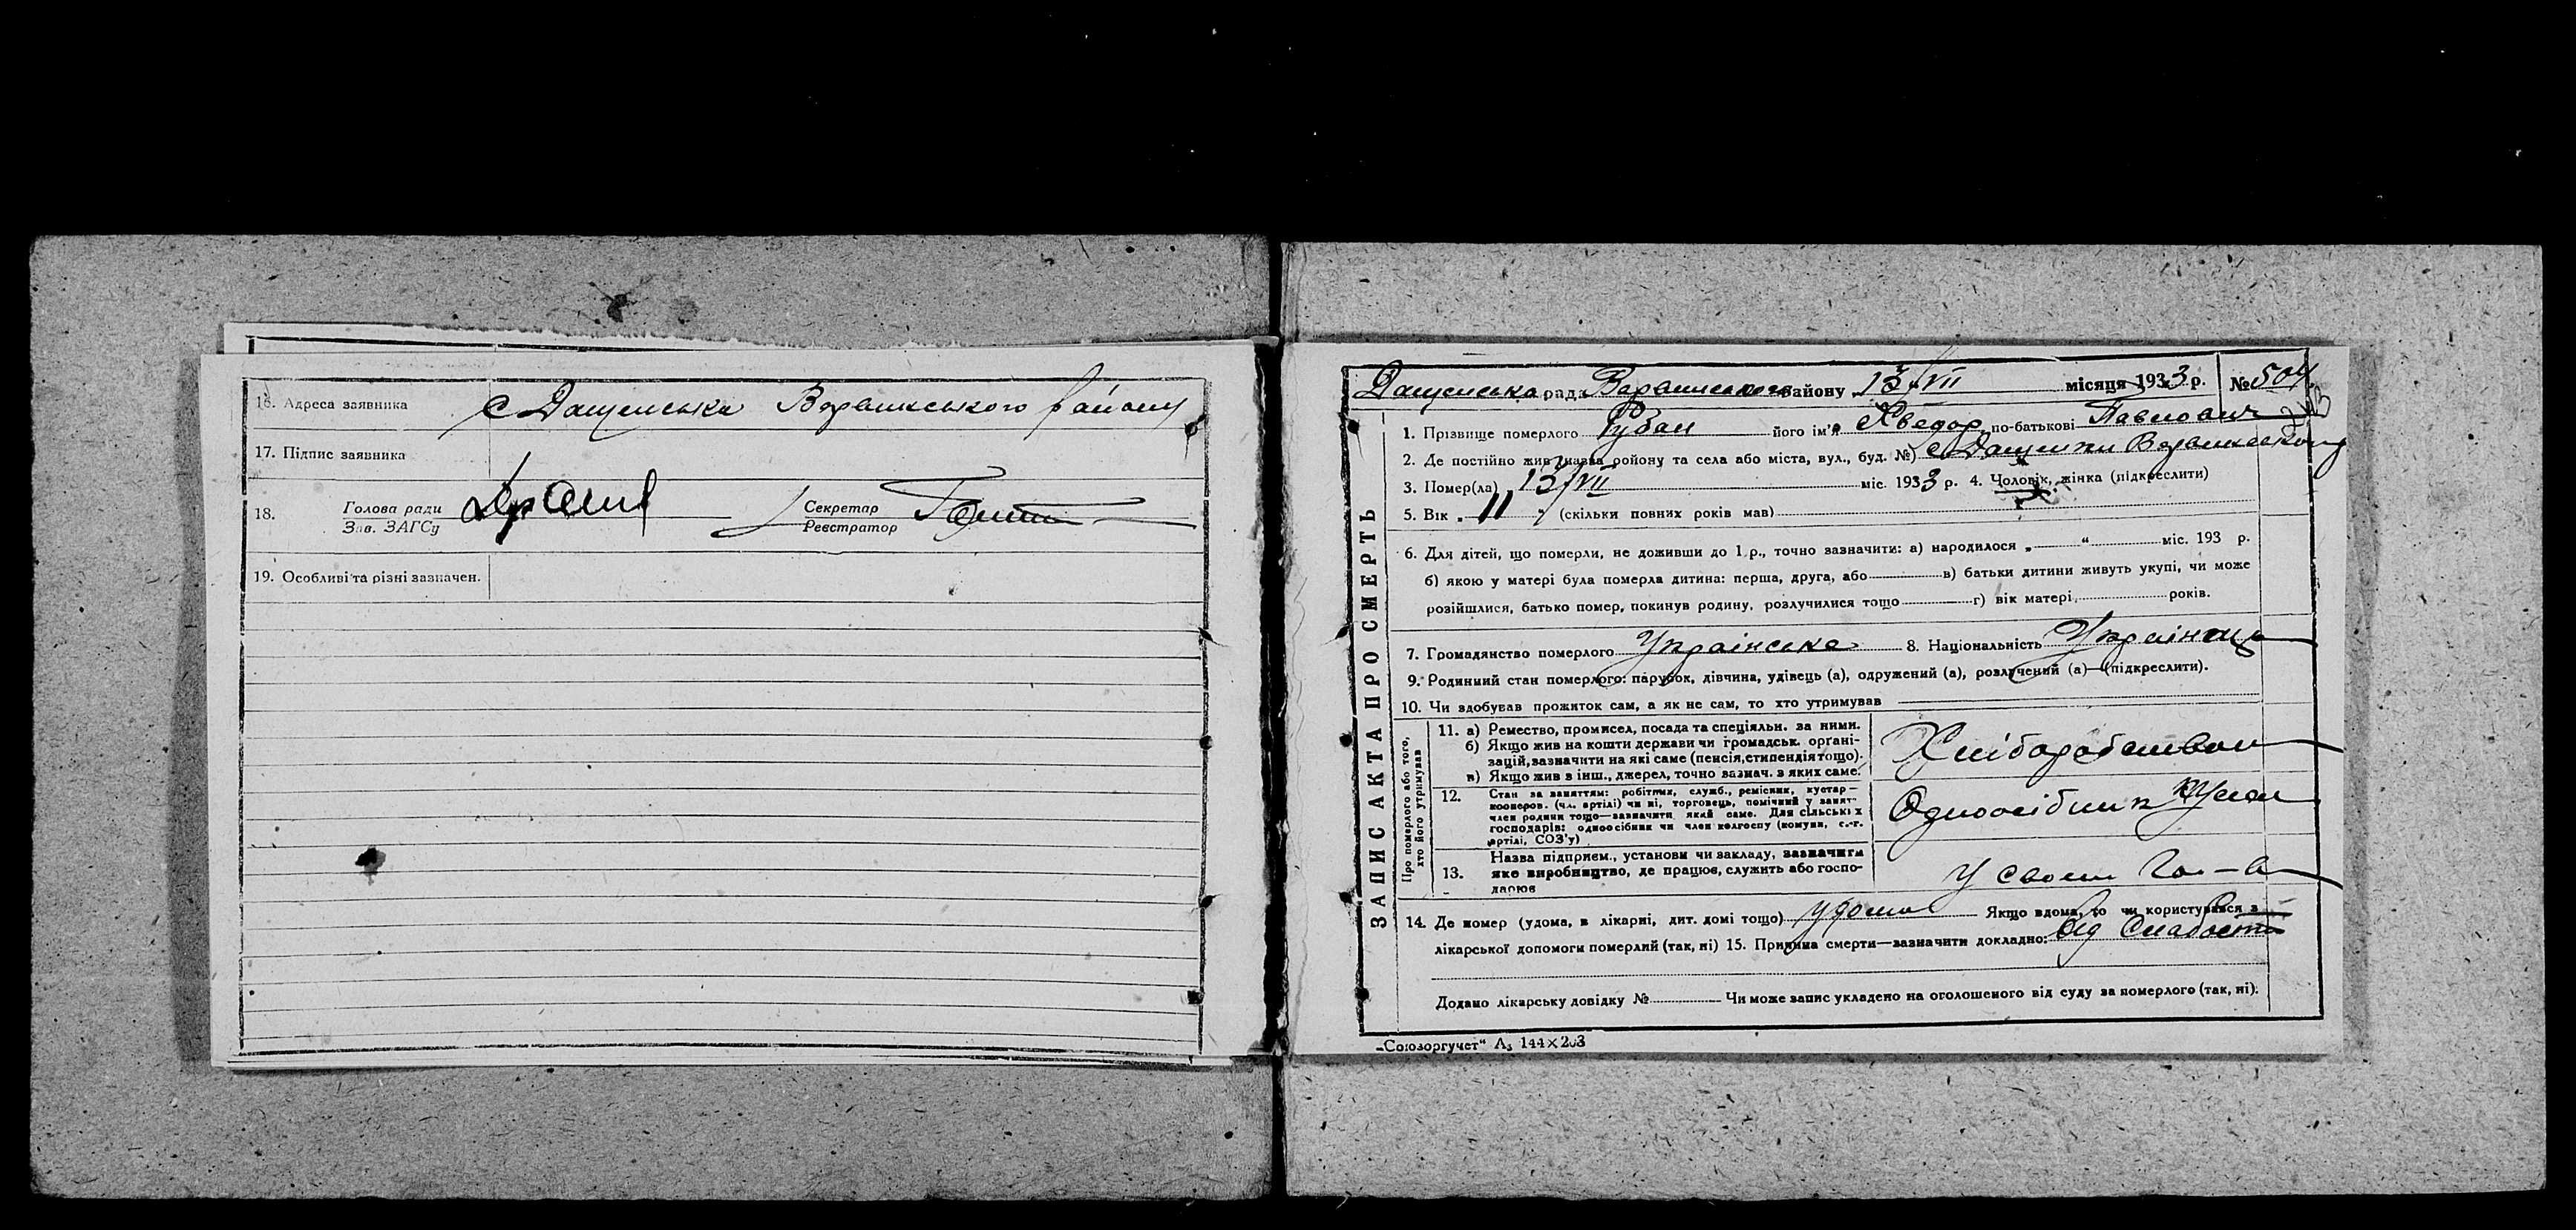 16. Адреса заявника с Дащенська Варвинського району
17. Підпис заявника
18. Голова ради
Зав. ЗАГСу
Секретар
Реєстратор
19. Особливі та різні зазначен.
ЗАПИС АКТА ПРО СМЕРТЬ
Дащенська рада Варвинського району 13/VII місяця 1933 р. № 504
1. Прізвище померлого Рубан його ім'я Хведор по-батькові Павлович
2. Де постійно жив (назва ройону та села або міста, вул., буд. №) с Дащенки Варвинському
3. Помер(ла) 13/VII міс. 1933 р. 4. Чоловік, жінка (підкреслити)
5. Вік „ 11 " (скільки повних років мав)
6. Для дітей, що померли, не доживши до 1 р., точно зазначити: а) народилося „ “ міс. 193 р.
б) якою у матері була померла дитина: перша, друга, або в) батьки дитини живуть укупі, чи може
розійшлися, батько помер, покинув родину, розлучилися тощо г) вік матері, років.
7. Громадянство померлого Українське 8. Національність Українець
9. Родинний стан померлого: парубок, дівчина, удівець (а), одружений (а), розлучений (а)—(підкреслити).
10. Чи здобував прожиток сам, а як не сам, то хто утримував
Про померлого або того,
хто його утримував
11. а) Ремество, промисел, посада та спеціяльн. за ними.
б) Якщо жив на кошти держави чи громадськ. орґані-
зацій, зазначити на які саме (пенсія, стипендія тощо).
в) Якщо жив з інш., джерел, точно зазнач. з яких саме.
Хліборобством
12. Стан за заняттям: робітник, служб., ремісник, кустар—
кооперов. (чл. артілі) чи ні, торговець, помічний у занят-
член родини тощо—зазначити який саме. Для сільських
господарів: одноосібник чи член колгоспу (комуни, с.-г.
артілі, СОЗ'у)
Одноосібник
13. Назва підприєм., установи чи закладу, зазначити
яке виробництво, де працює, служить або госпо-
дарює
У своєм
14. Де помер (удома, в лікарні, дит. домі тощо) удома Якщо вдома, то чи користувався з
лікарської допомоги померлий (так, ні) 15. Причина смерти—зазначити докладно: Від Слабости
Додано лікарську довідку № Чи може запис укладено на оголошеного від суду за померлого (так, ні).
„Союзоргучет“ А₅ 144×203